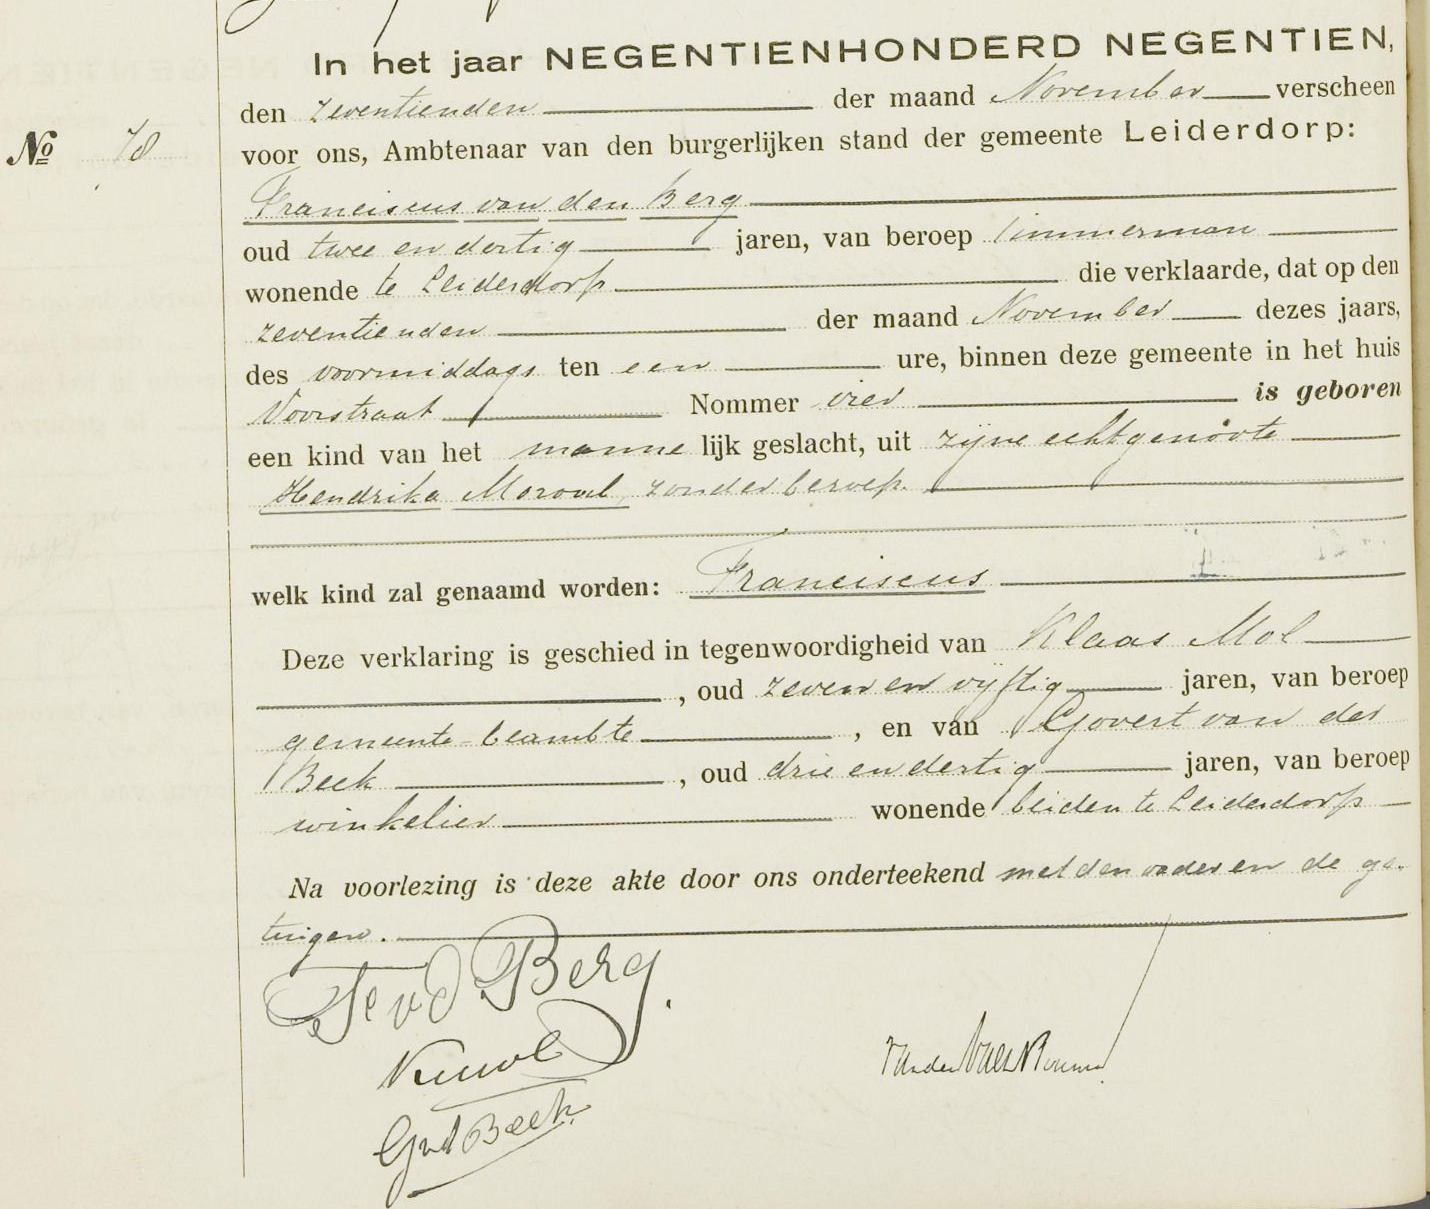 In het jaar NEGENTIENHONDERD NEGENTIEN,
den zeventienden der maand November verscheen
No 78
voor ons, Ambtenaar van den burgerlijken stand der gemeente Leiderdorp:
Franciscus van den Berg
oud twee en dertig jaren, van beroep timmerman
wonende te Leiderdorp die verklaarde, dat op den
zeventienden der maand November dezes jaars,
des voormiddags ten een ure, binnen deze gemeente in het huis
Voorstraat Nommer vier is geboren
een kind van het manne lijk geslacht, uit zijne echtgenoote
Hendrika zonder beroep.
welk kind zal genaamd worden: Franciscus
Deze verklaring is geschied in tegenwoordigheid van Klaas Mol
, oud zeven en vijftig jaren, van beroep
gemeente-beambte , en van Govert van der
Beek , oud drie en dertig jaren, van beroep
winkelier wonende beiden te Leiderdorp
Na voorlezing is deze akte door ons onderteekend met den vader en de ge-
tuigen.
F v d Berg.
K Mol
G v d Beek.